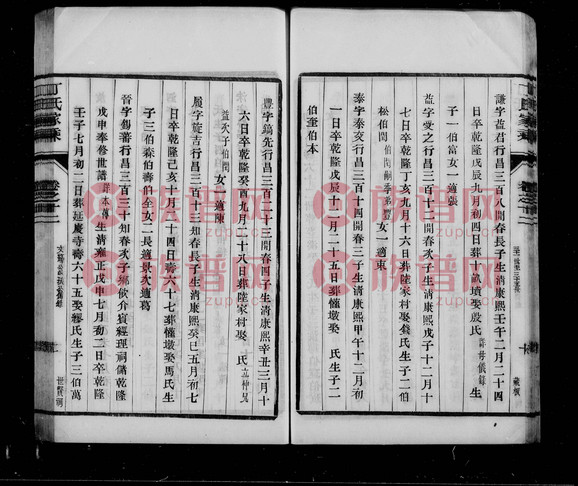 謙字益君行昌三百八開春長子生清康熙壬午二月二十四
日卒乾隆戊辰九月初四日葬十畝墳娶殷氏 生
子一伯富女一適張
益字愛之行昌三百十二開春次子生清康熙戊子十二月十
七日卒乾隆丁亥九月十六日葬陸家村娶錢氏生子二伯
松伯閑 女一適東
泰字泰交行昌三百十四開春三子生清康熙甲午十二月初
一日卒乾隆戊辰十二月二十五日葬 墩娶 氏生子二
伯奎伯本
豐字鎬先行昌三百二十三開春四子生清康熙辛丑三月十
六日卒乾隆癸酉九月二十八日葬陸家村娶 氏立仲兄
益次子伯閑 女一適陳
履字旋吉行昌三百二十三知春長子生清康熙癸巳五月初七
日卒乾隆己亥十月二十四日壽六十七葬 墩娶馬氏生
子三伯森伯壽 女二長適吳次適葛
晉字錫蕃行昌三百三十知春次子鄉飲介賓經理祠儲乾隆
戊申奉修世譜 生清雍正戊申七月初二日卒乾隆
壬子七月初二日葬延慶寺壽六十五娶 氏生子三伯萬
丁氏家乘
卷之十二
族谱网
族谱网